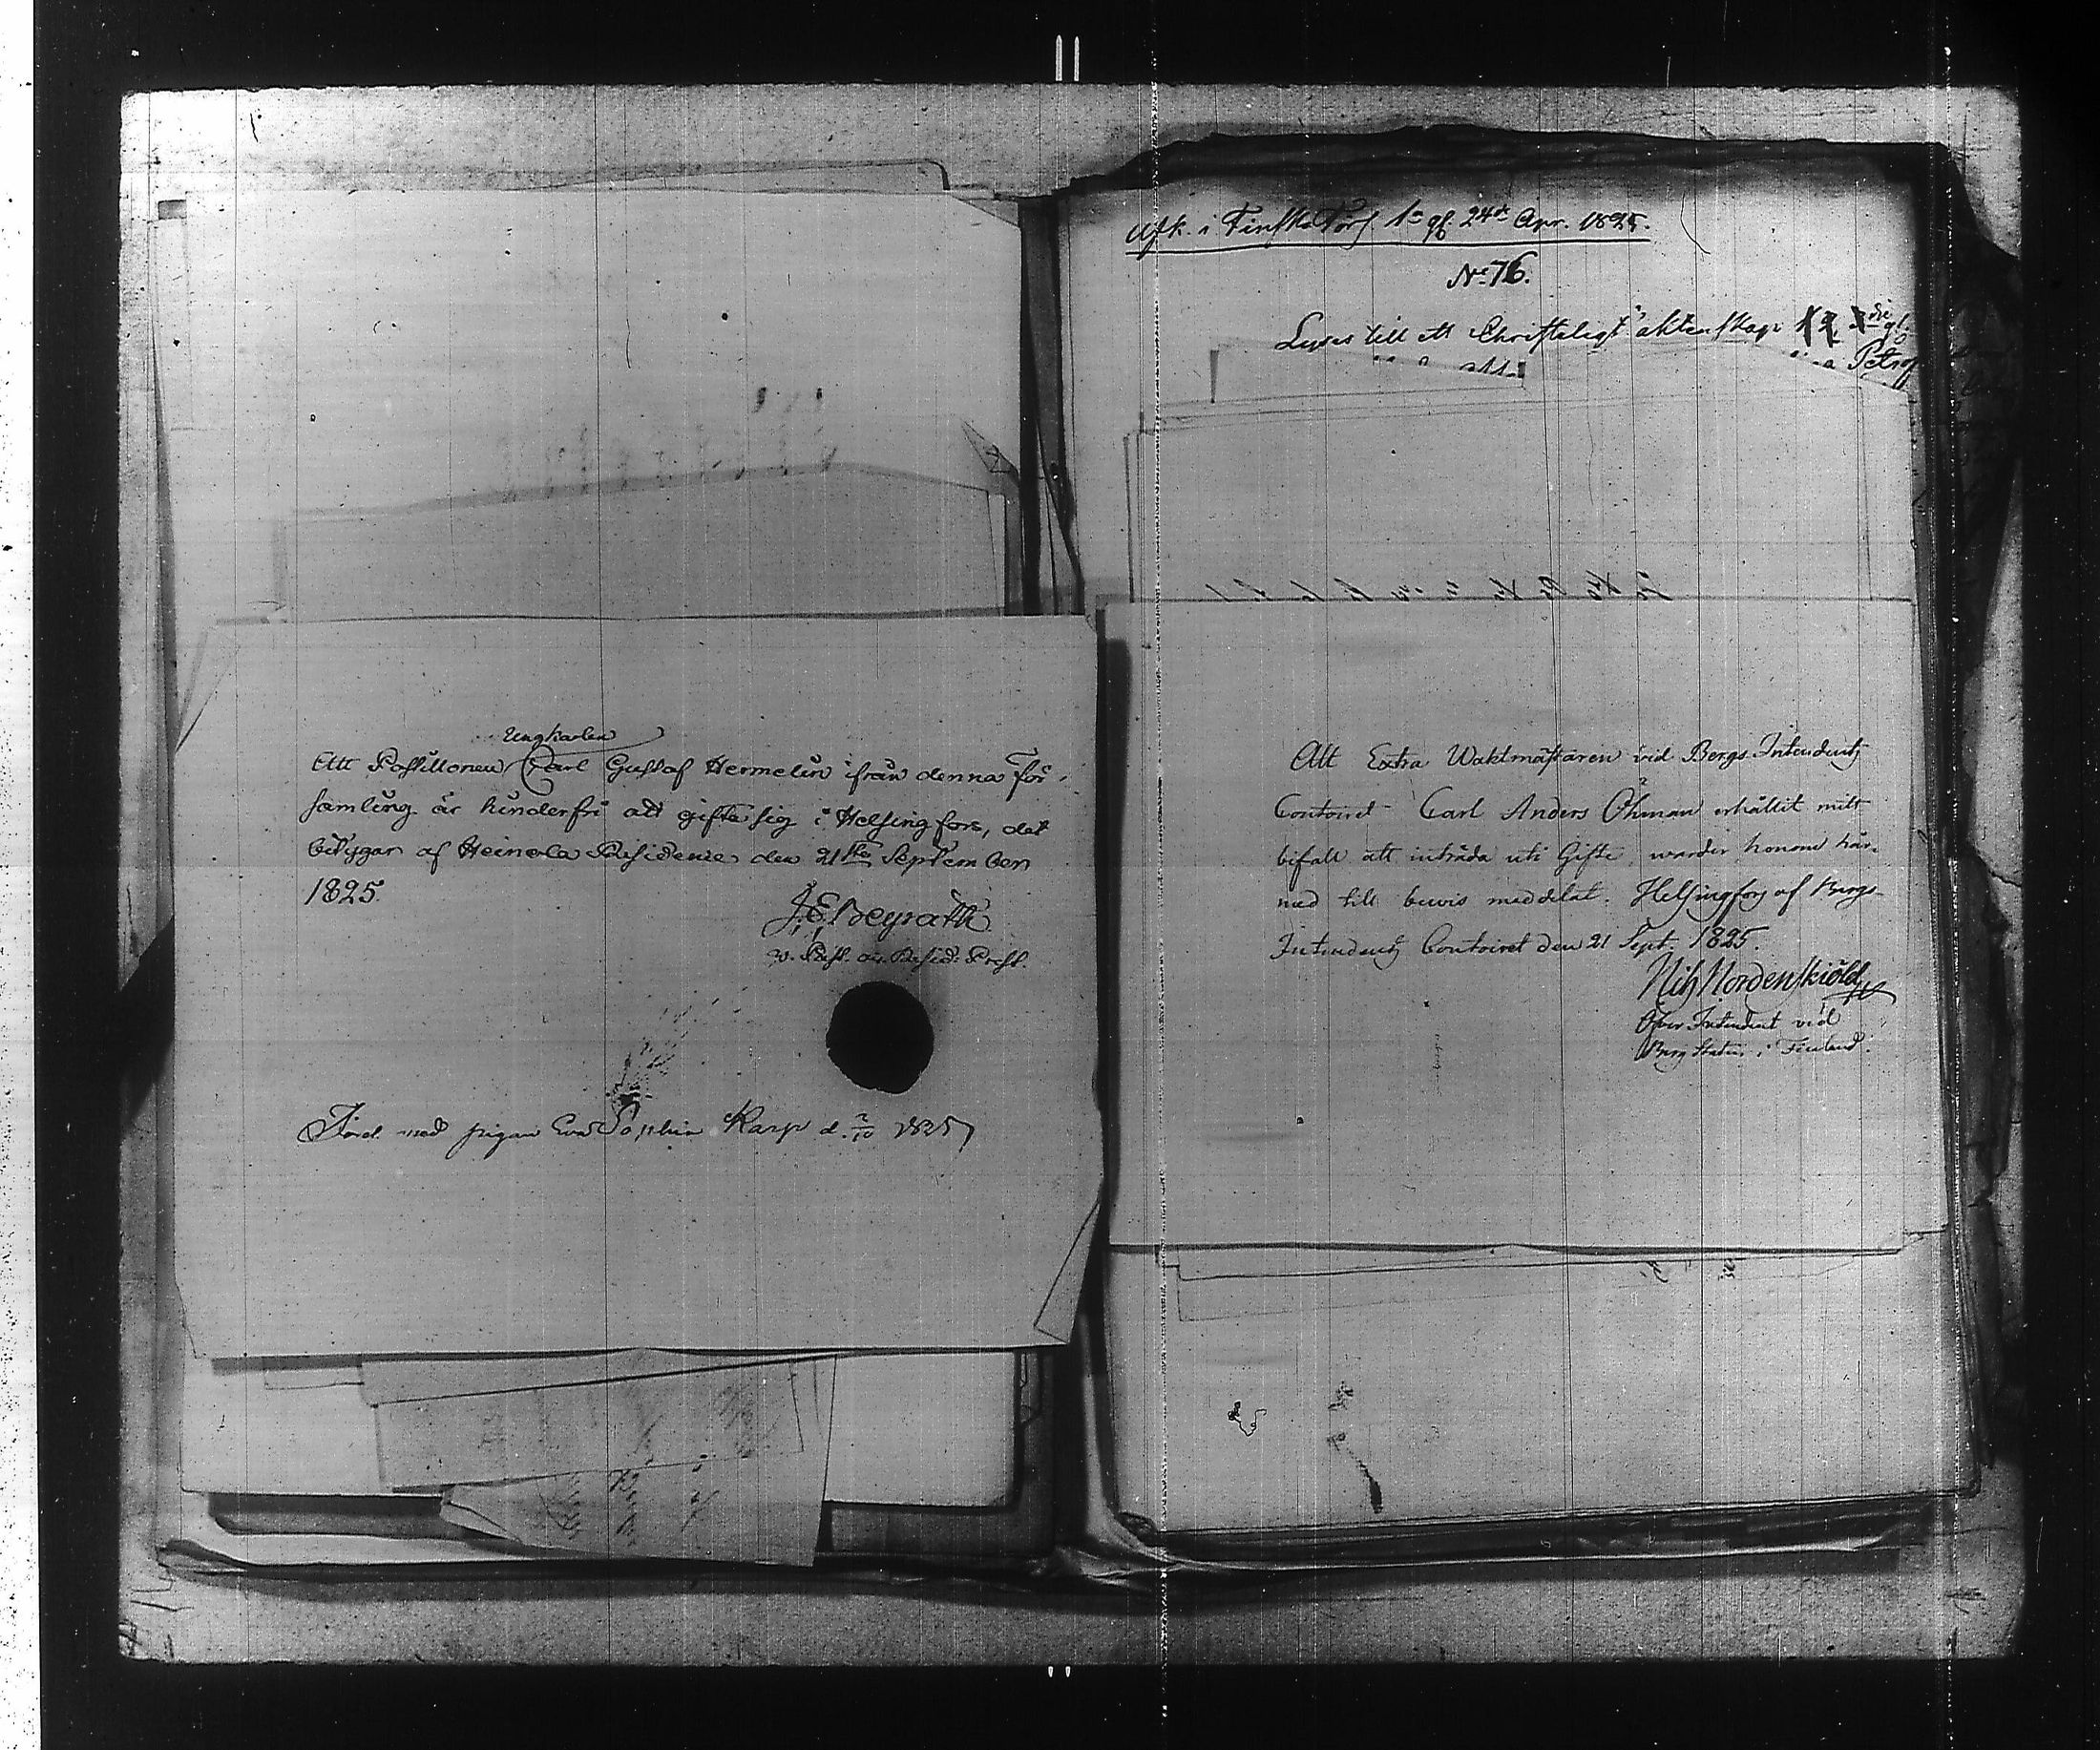 Ungkarlen
Att Postillonen Carl Gustaf Hermelin ifrån denna För-
samling är hinderfri att gifta sig i Helsingfors, det
betygar af Heinola Residence den 21sta September
1825.
v. Past. Resid: Prest.
Förd. med pigan Eva Sophia Karp d. 2/10 1825
Afk. i Finska Förs. 1a gg. 24de Apr. 1825.
No 76.
Lyses till ett Christeligt äktenskap
Petrof
Att Extra Waktmästaren vid Bergs Intendents
Contoiret Carl Anders Öhman erhållit mitt
bifall att inträda uti Gifte, warder honom här-
med till bewis meddelat. Helsingfors af Bergs
Intendents Contoiret den 21 Sept. 1825.
Nils Nordenskiöld
Öfver Intendent vid
Berg Staten i Finland.